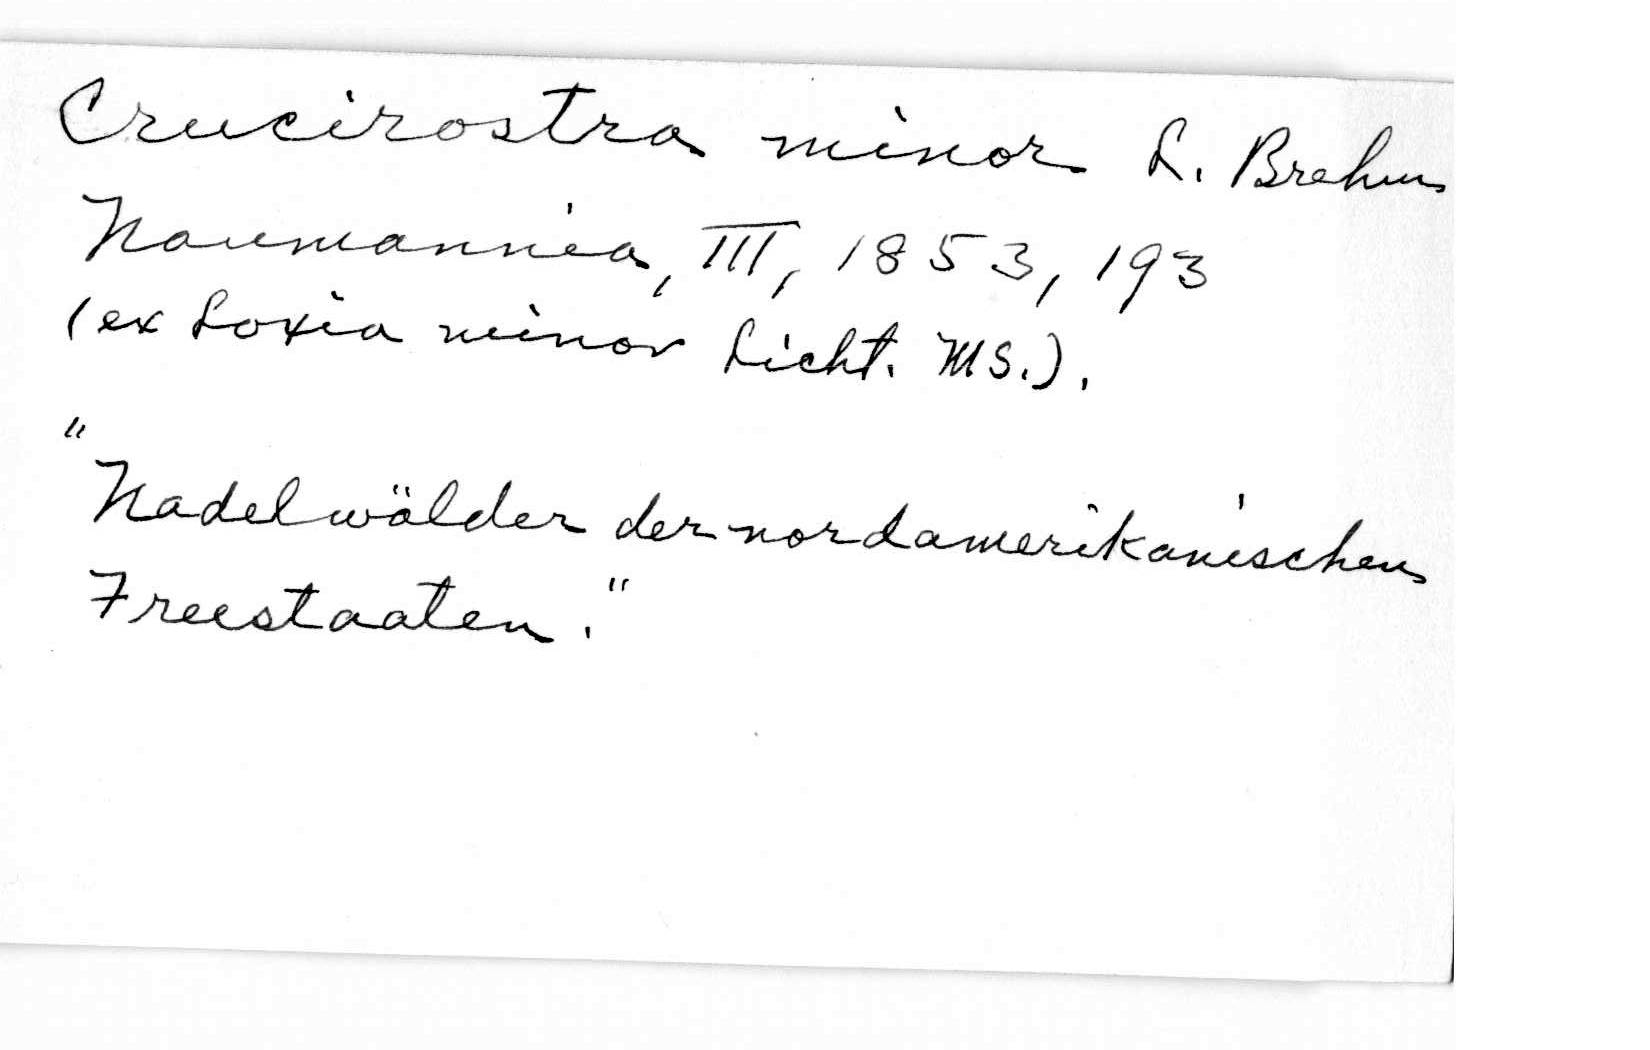 Crucirostra minor L. Brehm
Naumannia, III, 1853, 193
(ex Loxia minor Licht. MS.).
"Nadelwälder der nordamerikanischen
Freestaaten."